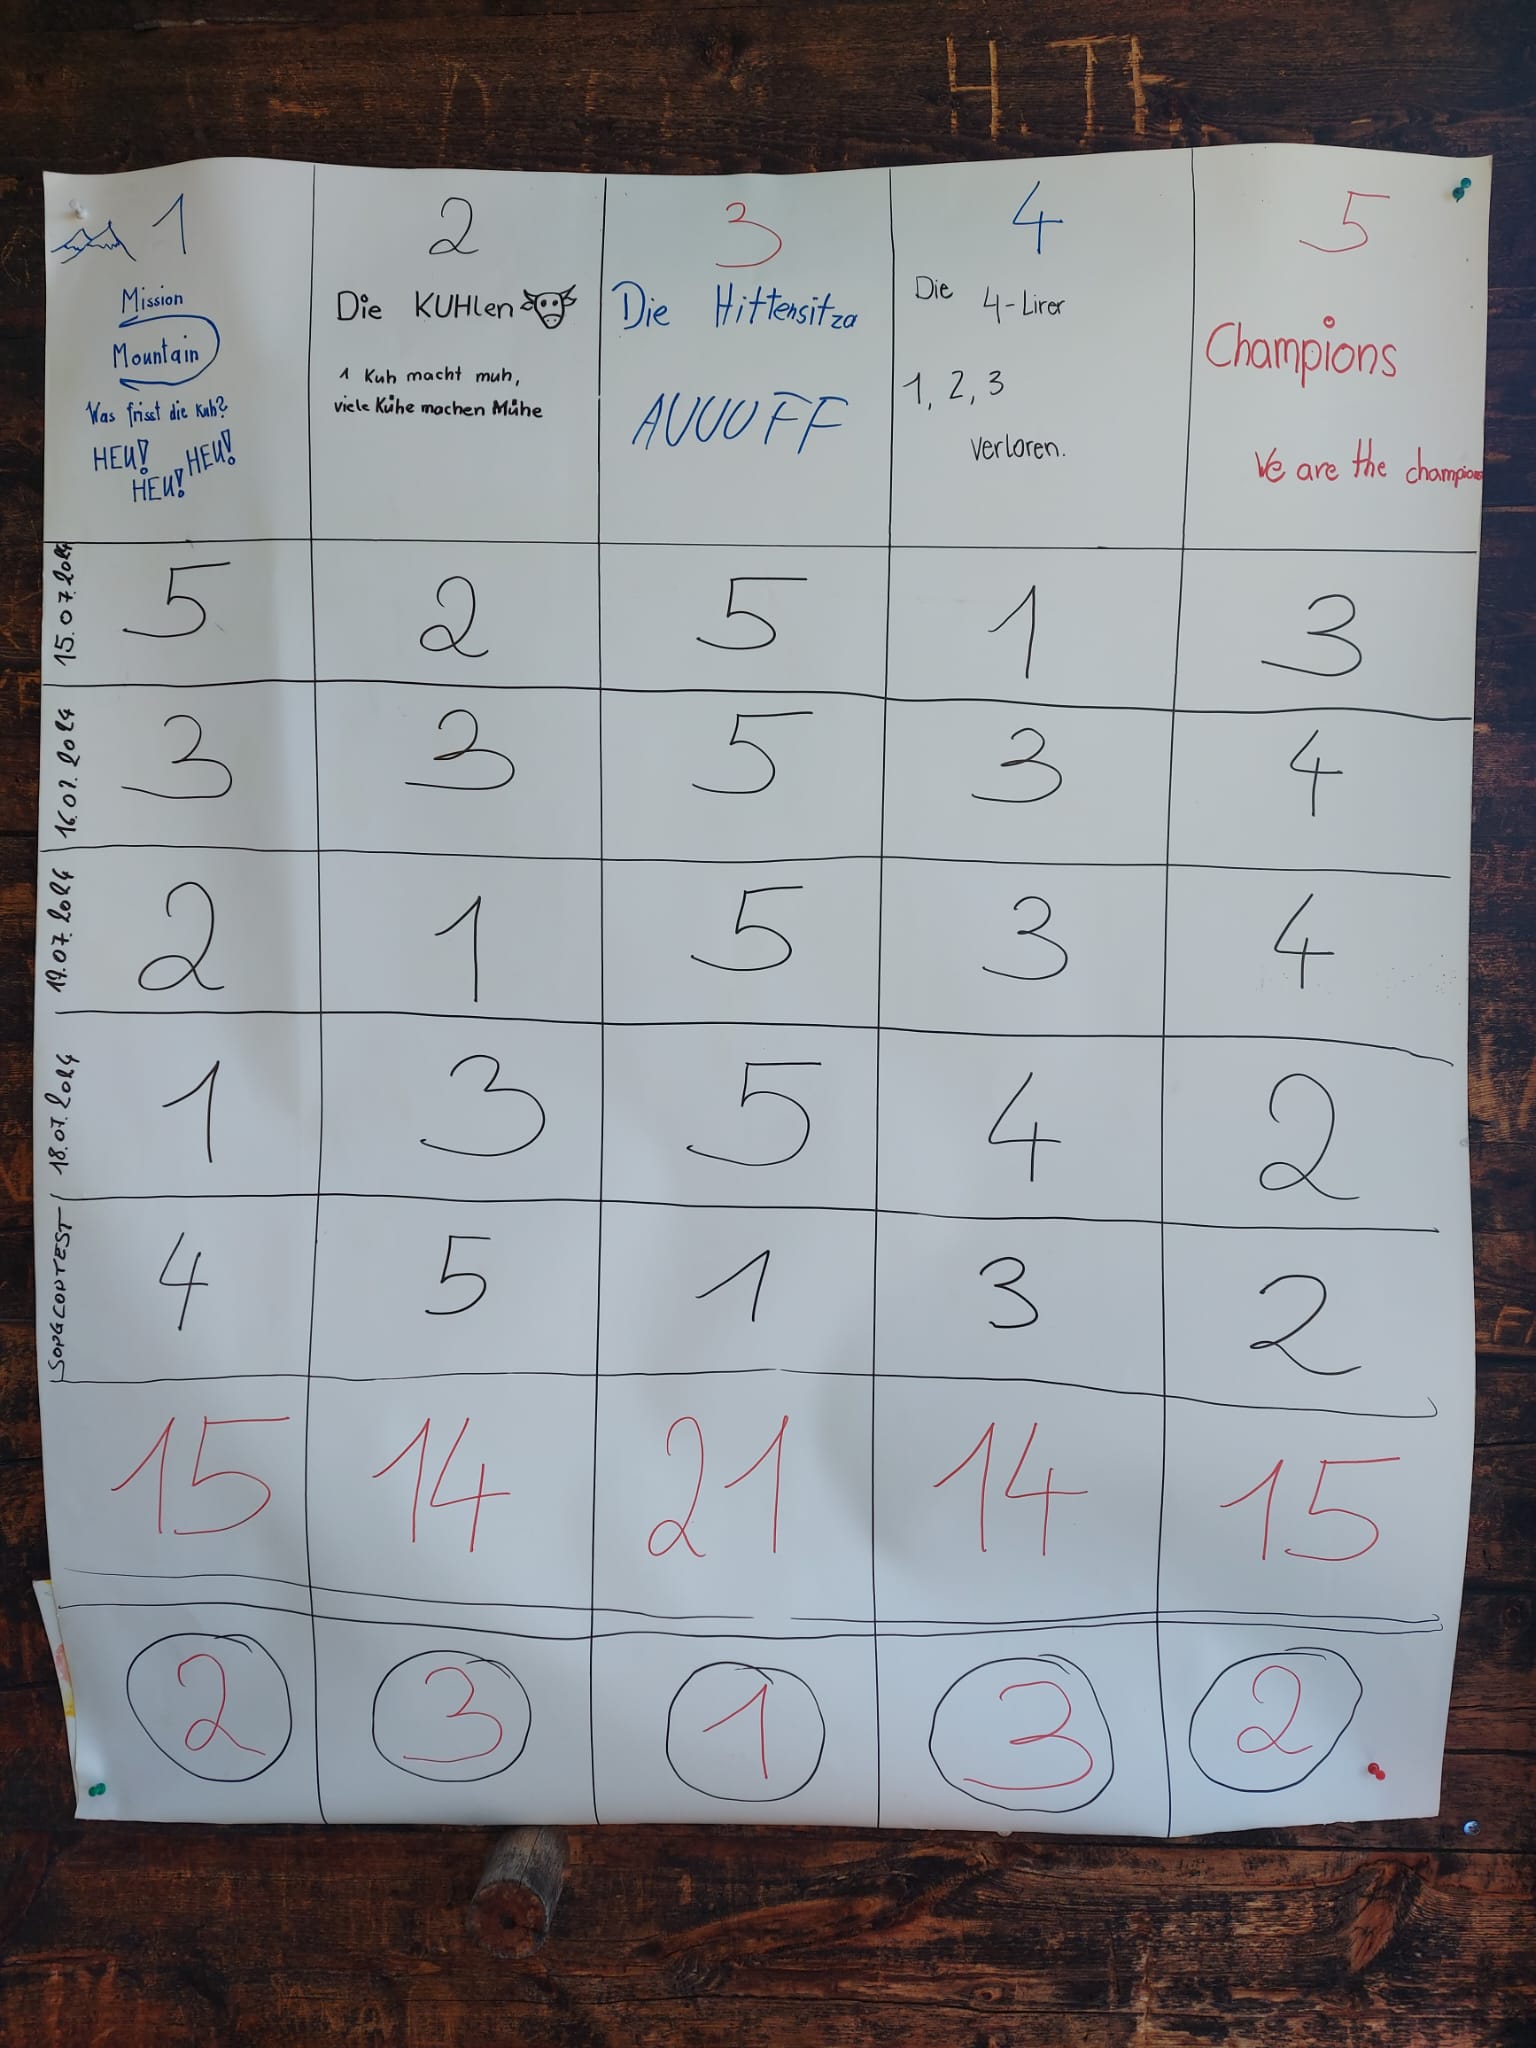 HTL
1
2
3
4
5
Mission
Mountain
Was frisst die Kuh?
HEU! HEU!
HEU!
Die KUHlen
1 Kuh macht muh,
viele Kühe machen Mühe
Die Hittensitza
AUUUFF
Die 4-Lirer
1, 2, 3
verloren.
Champions
We are the champions
15.07.2024 5 2 5 1 3
16.07.2024 3 3 5 3 4
17.07.2024 2 1 5 3 4
18.07.2024 1 3 5 4 2
SONGCONTEST 4 5 1 3 2
15 14 21 14 15
2 3 1 3 2